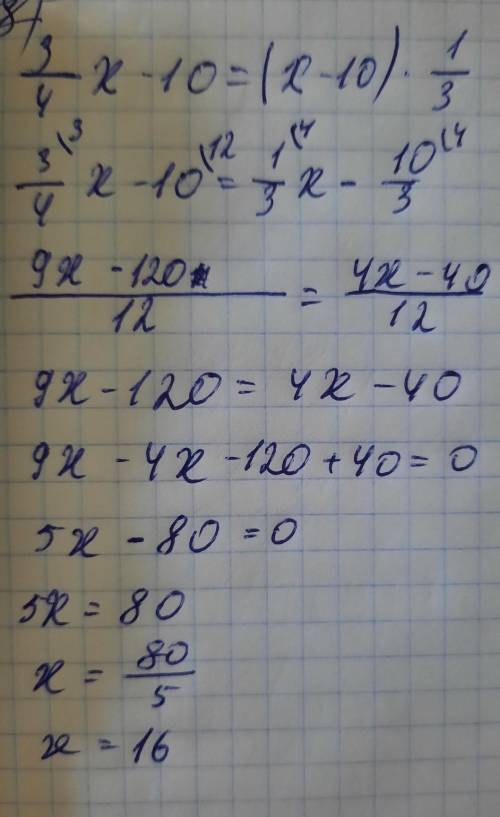 8)
3/4 x - 10 = (x - 10) · 1/3
3/4 (3 x - 10 (12 = 1/3 (4 x - 10/3 (4
9x - 120 / 12 = 4x - 40 / 12
9x - 120 = 4x - 40
9x - 4x - 120 + 40 = 0
5x - 80 = 0
5x = 80
x = 80/5
x = 16